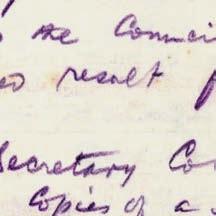 the Counci
result
Secretary Co
Copies of a